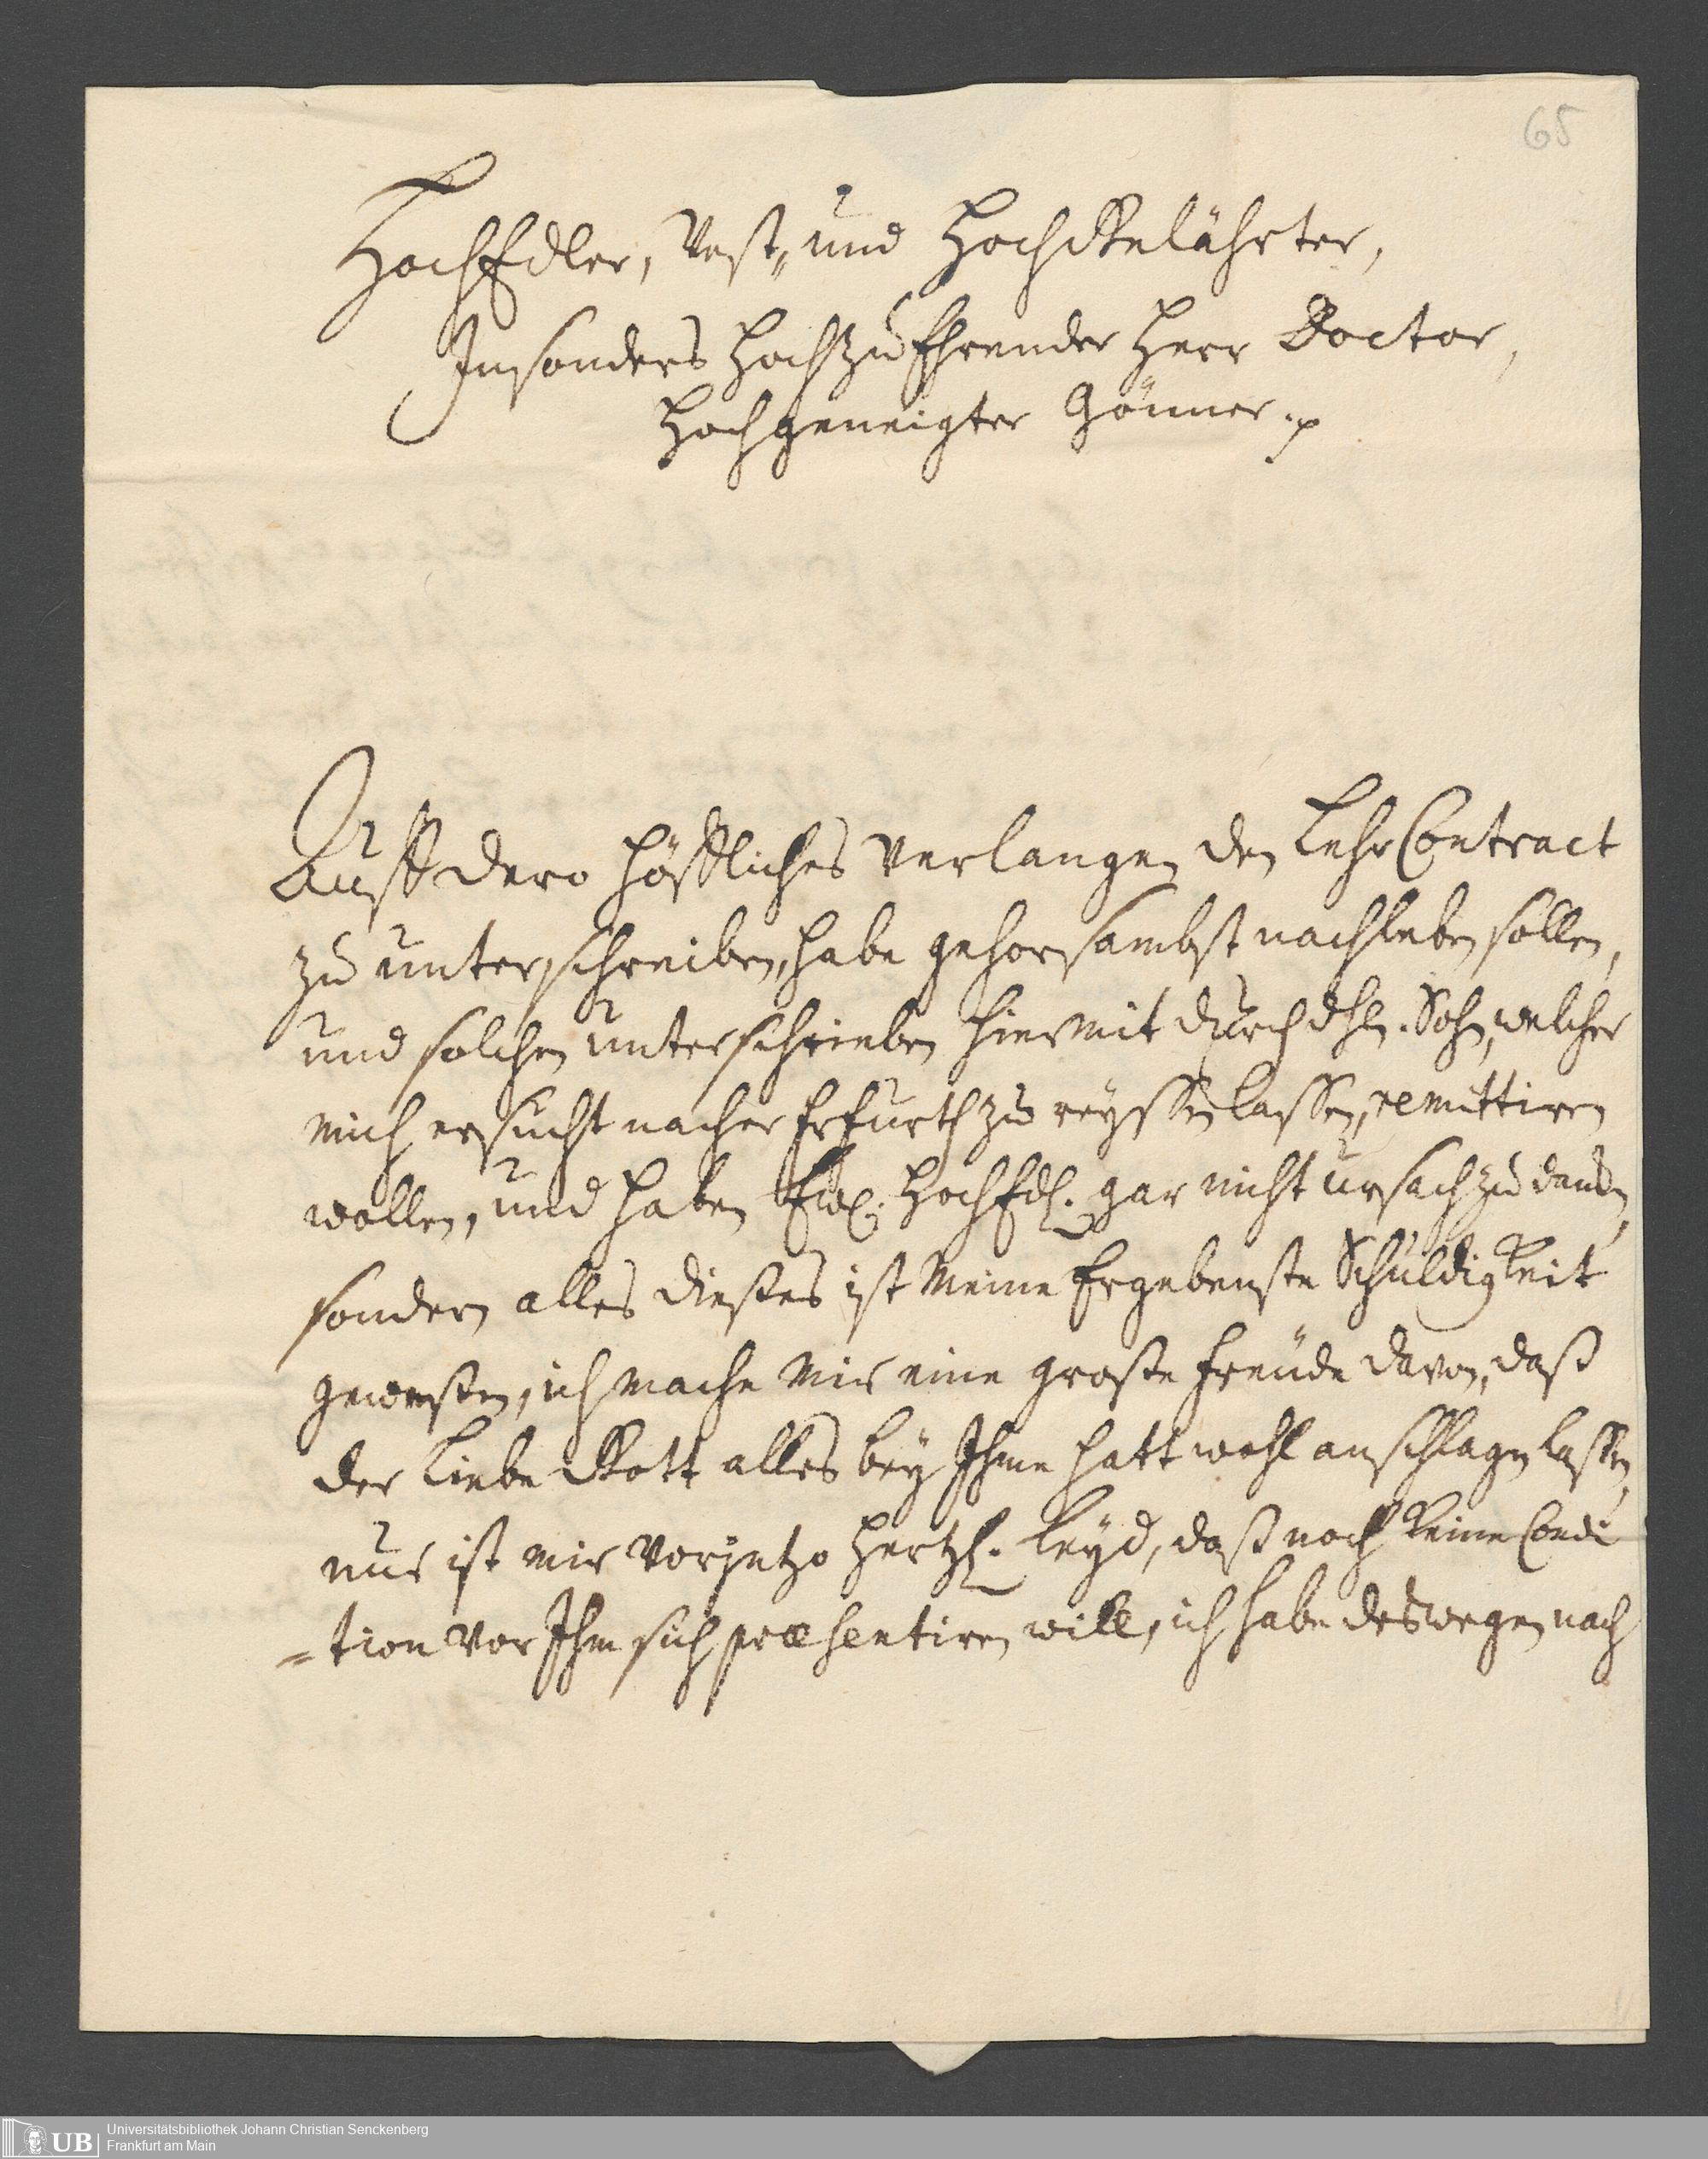 65
HochEdler, Vest„ und HochGelährter,
Insonders HochzuEhrender Herr Doctor,
Hochgeneigter Gönner. p
Auff dero höffliches Verlangen den LehrContract
zu unterschreiben, habe gehorsambst nachleben sollen,
und solchen unterschrieben hiermit durch dhln. Sohn, welcher
mich ersucht nacher Erfurth zu reyssen lassen, remittiren
wollen, und haben Ew. HochEdl. gar nicht ursach zu dancken,
sondern alles dießes ist Meine Ergebenste Schuldigkeit
geweßen, ich mache Mir eine große Freude davon, daß
der Liebe Gott alles bey Ihme hatt wohl anschlagen laßen,
nur ist mir vorjetzo Hertzl. Leyd, daß noch keine Condi
=tion vor Ihm sich præsentiren will, ich habe deswegen nach
UB
Universitätsbibliothek Johann Christian Senckenberg
Frankfurt am Main